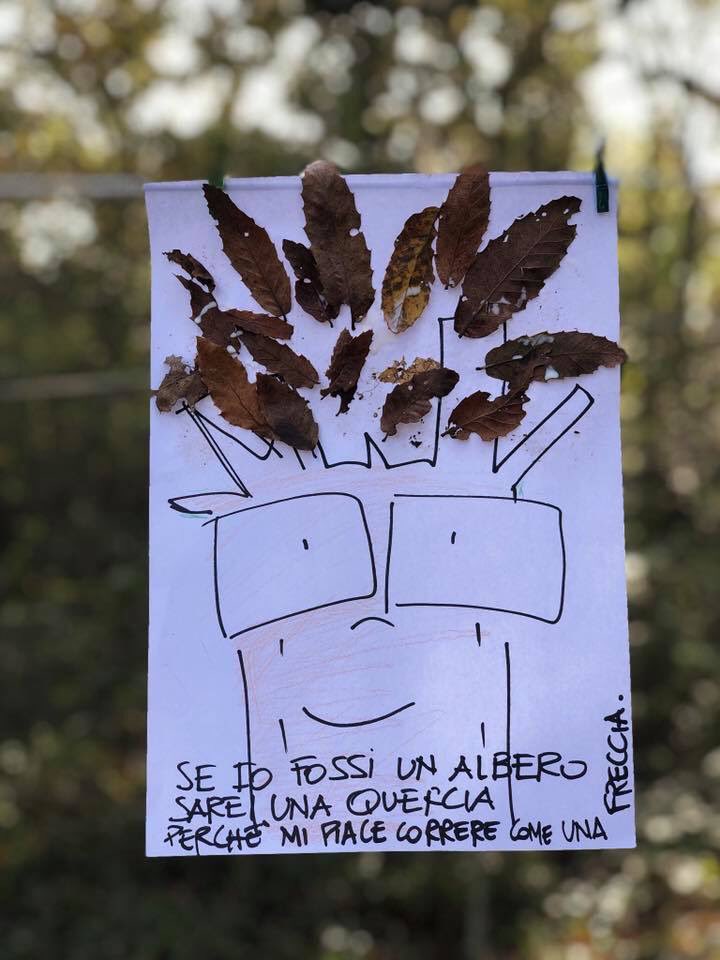 SE IO FOSSI UN ALBERO
SAREI UNA QUERCIA
PERCHÈ MI PIACE CORRERE COME UNA
FRECCIA.